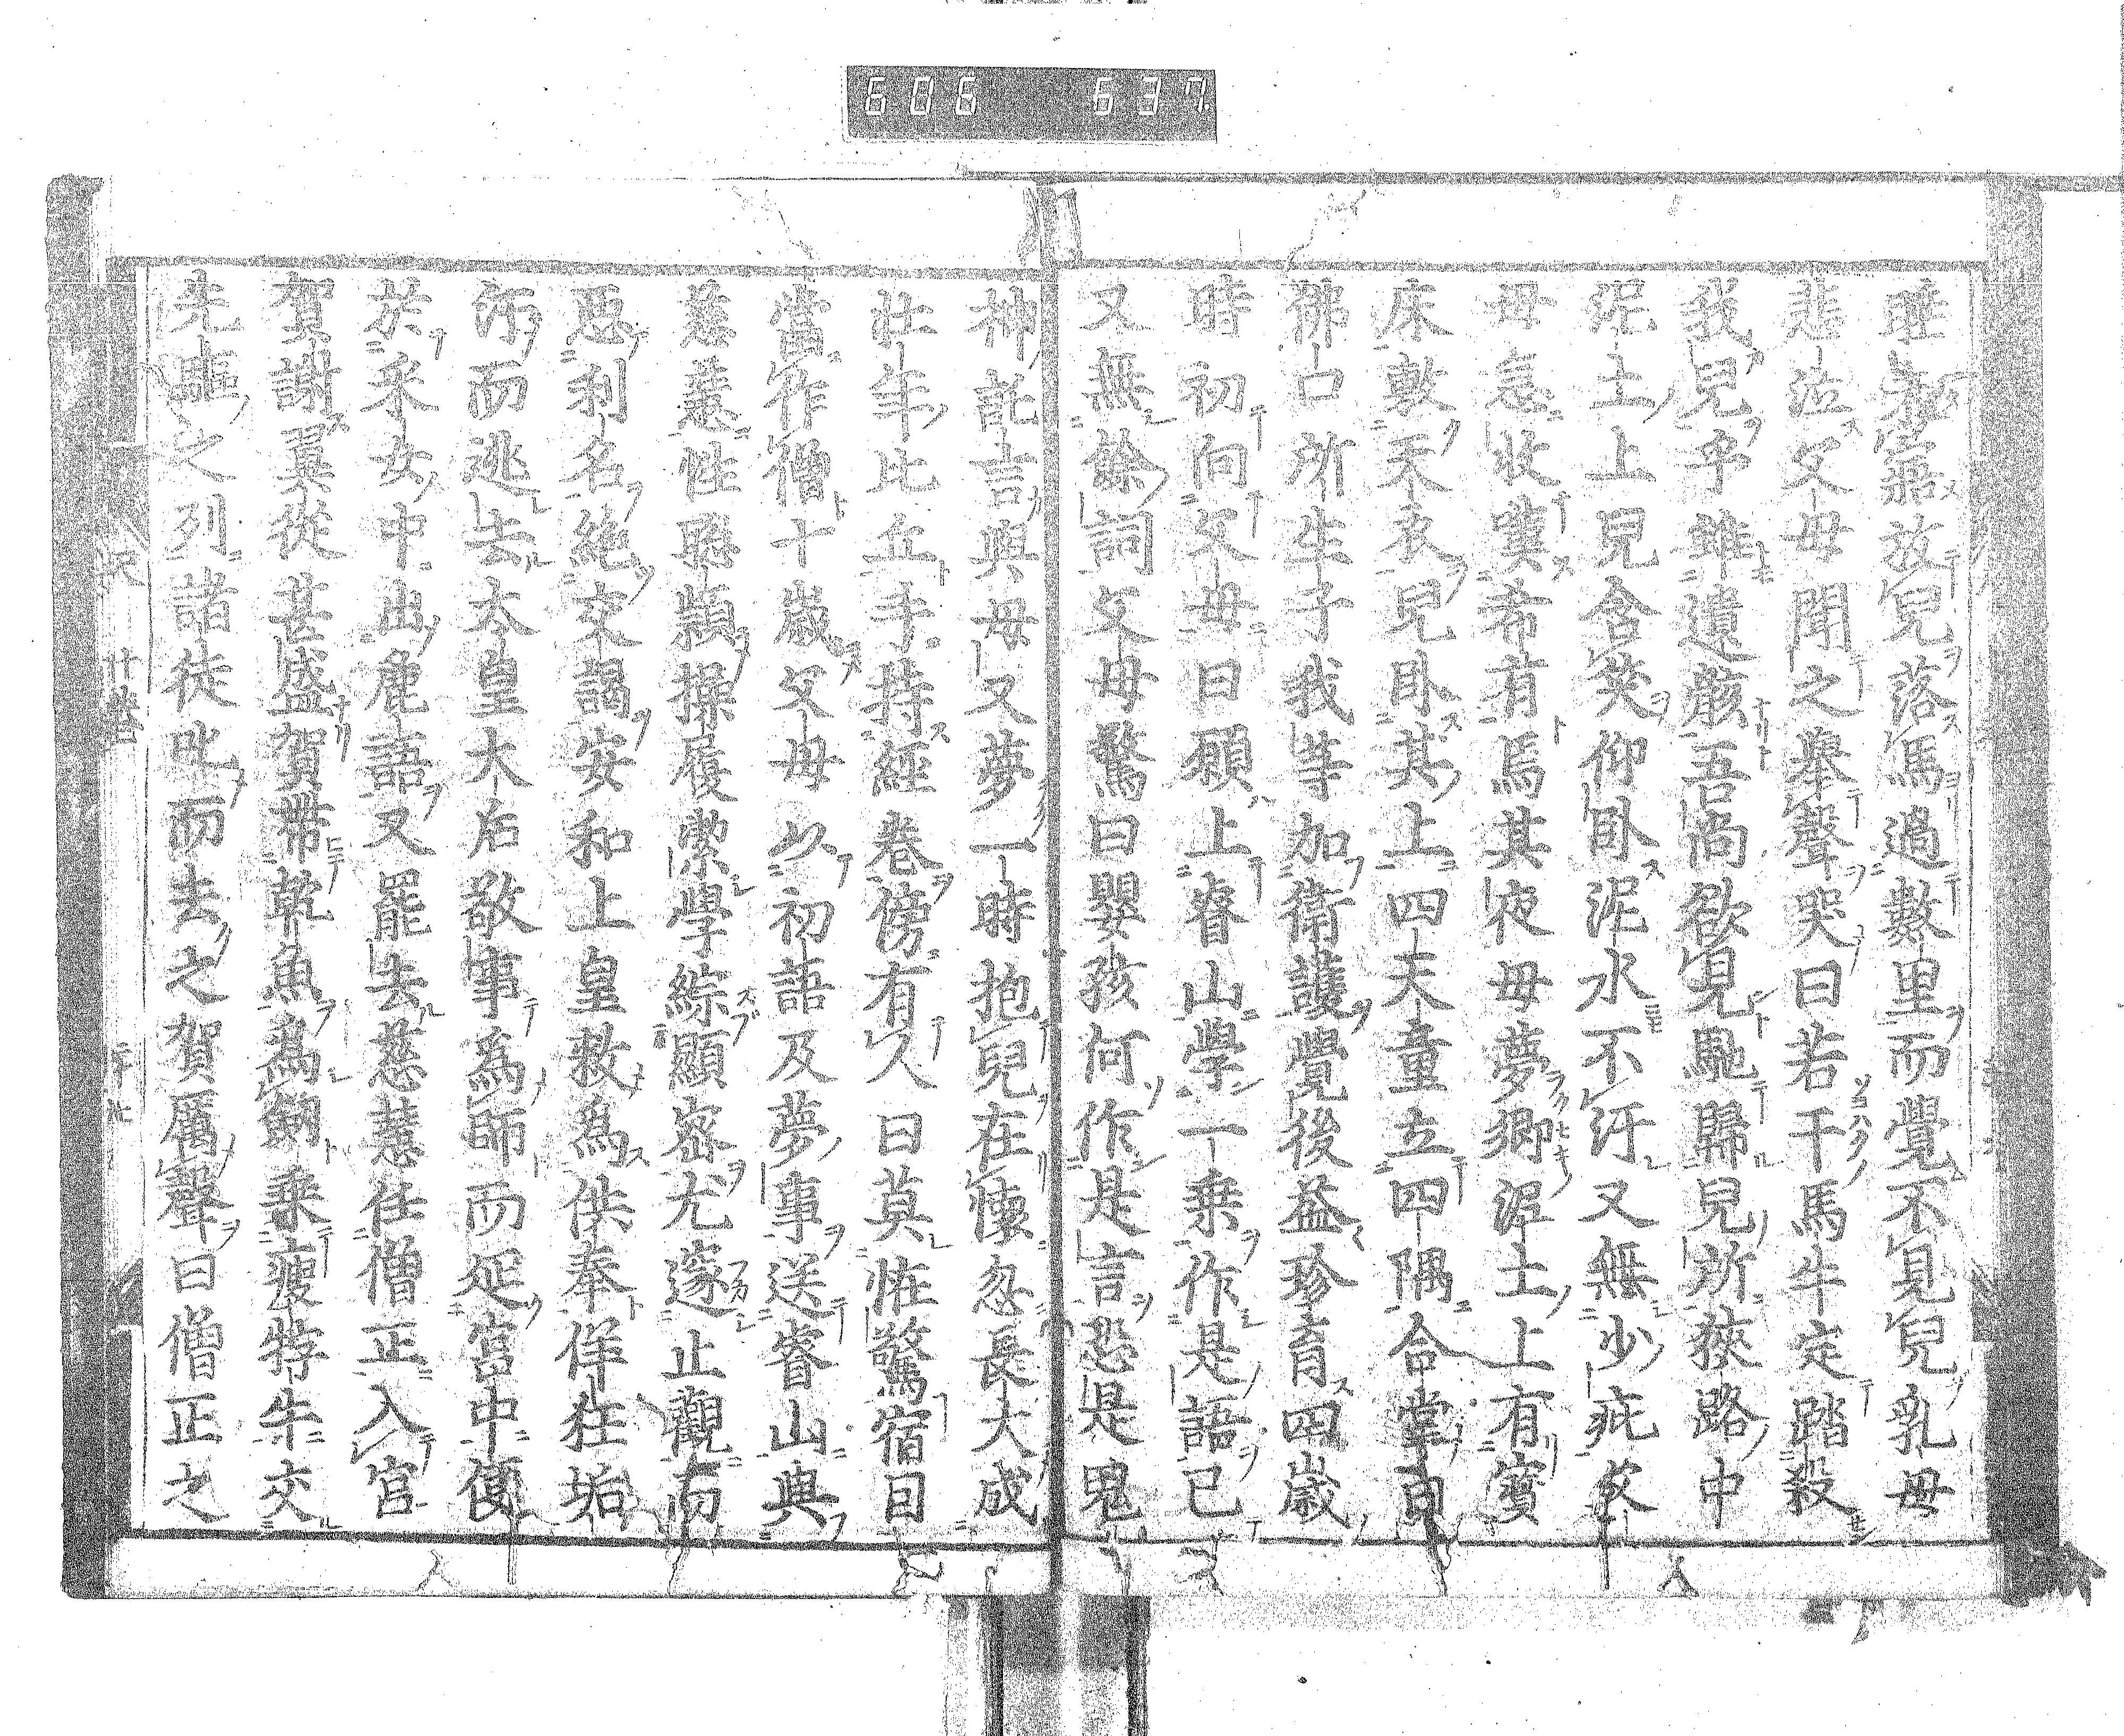 606 637
睡未寤放兒落馬過數里而覺不見兒乳母
悲泣父母聞之擧聲哭曰若干馬牛定踏殺
我兒乎雖遺骸吾尚欲見馳歸兒所狹路中
泥土上兒含笑仰臥泥水不汙又無少疵父
母急收嘆希有焉其夜母夢鄉泥土上有寶
床敷天衣兒臥其上四天童立四隅合掌曰
佛口所生子我等加衛護覺後益珍育四歲
時初向父母曰願上睿山學一乘作是語已
又無餘詞父母驚曰嬰孩何作是言恐是鬼
神託言與母又夢一時抱兒在懷忽長大成
壯年比丘手持經卷傍有人曰莫恠驚宿因
當作僧十歲父母以初語及夢事送睿山與
慈慧性聰頴操履潔學綜顯密尤邃止觀而
惡利名絕交謁安和上皇敕爲供奉佯狂垢
汙而逃去太皇大后敬事爲師而延宮中便
於釆女中出鹿語又罷去慈慧任僧正入官
賀謝翼從甚盛賀帶乾魚爲劒乘瘦牸牛交
先驅之列諸徒叱而去之賀厲聲曰僧正之